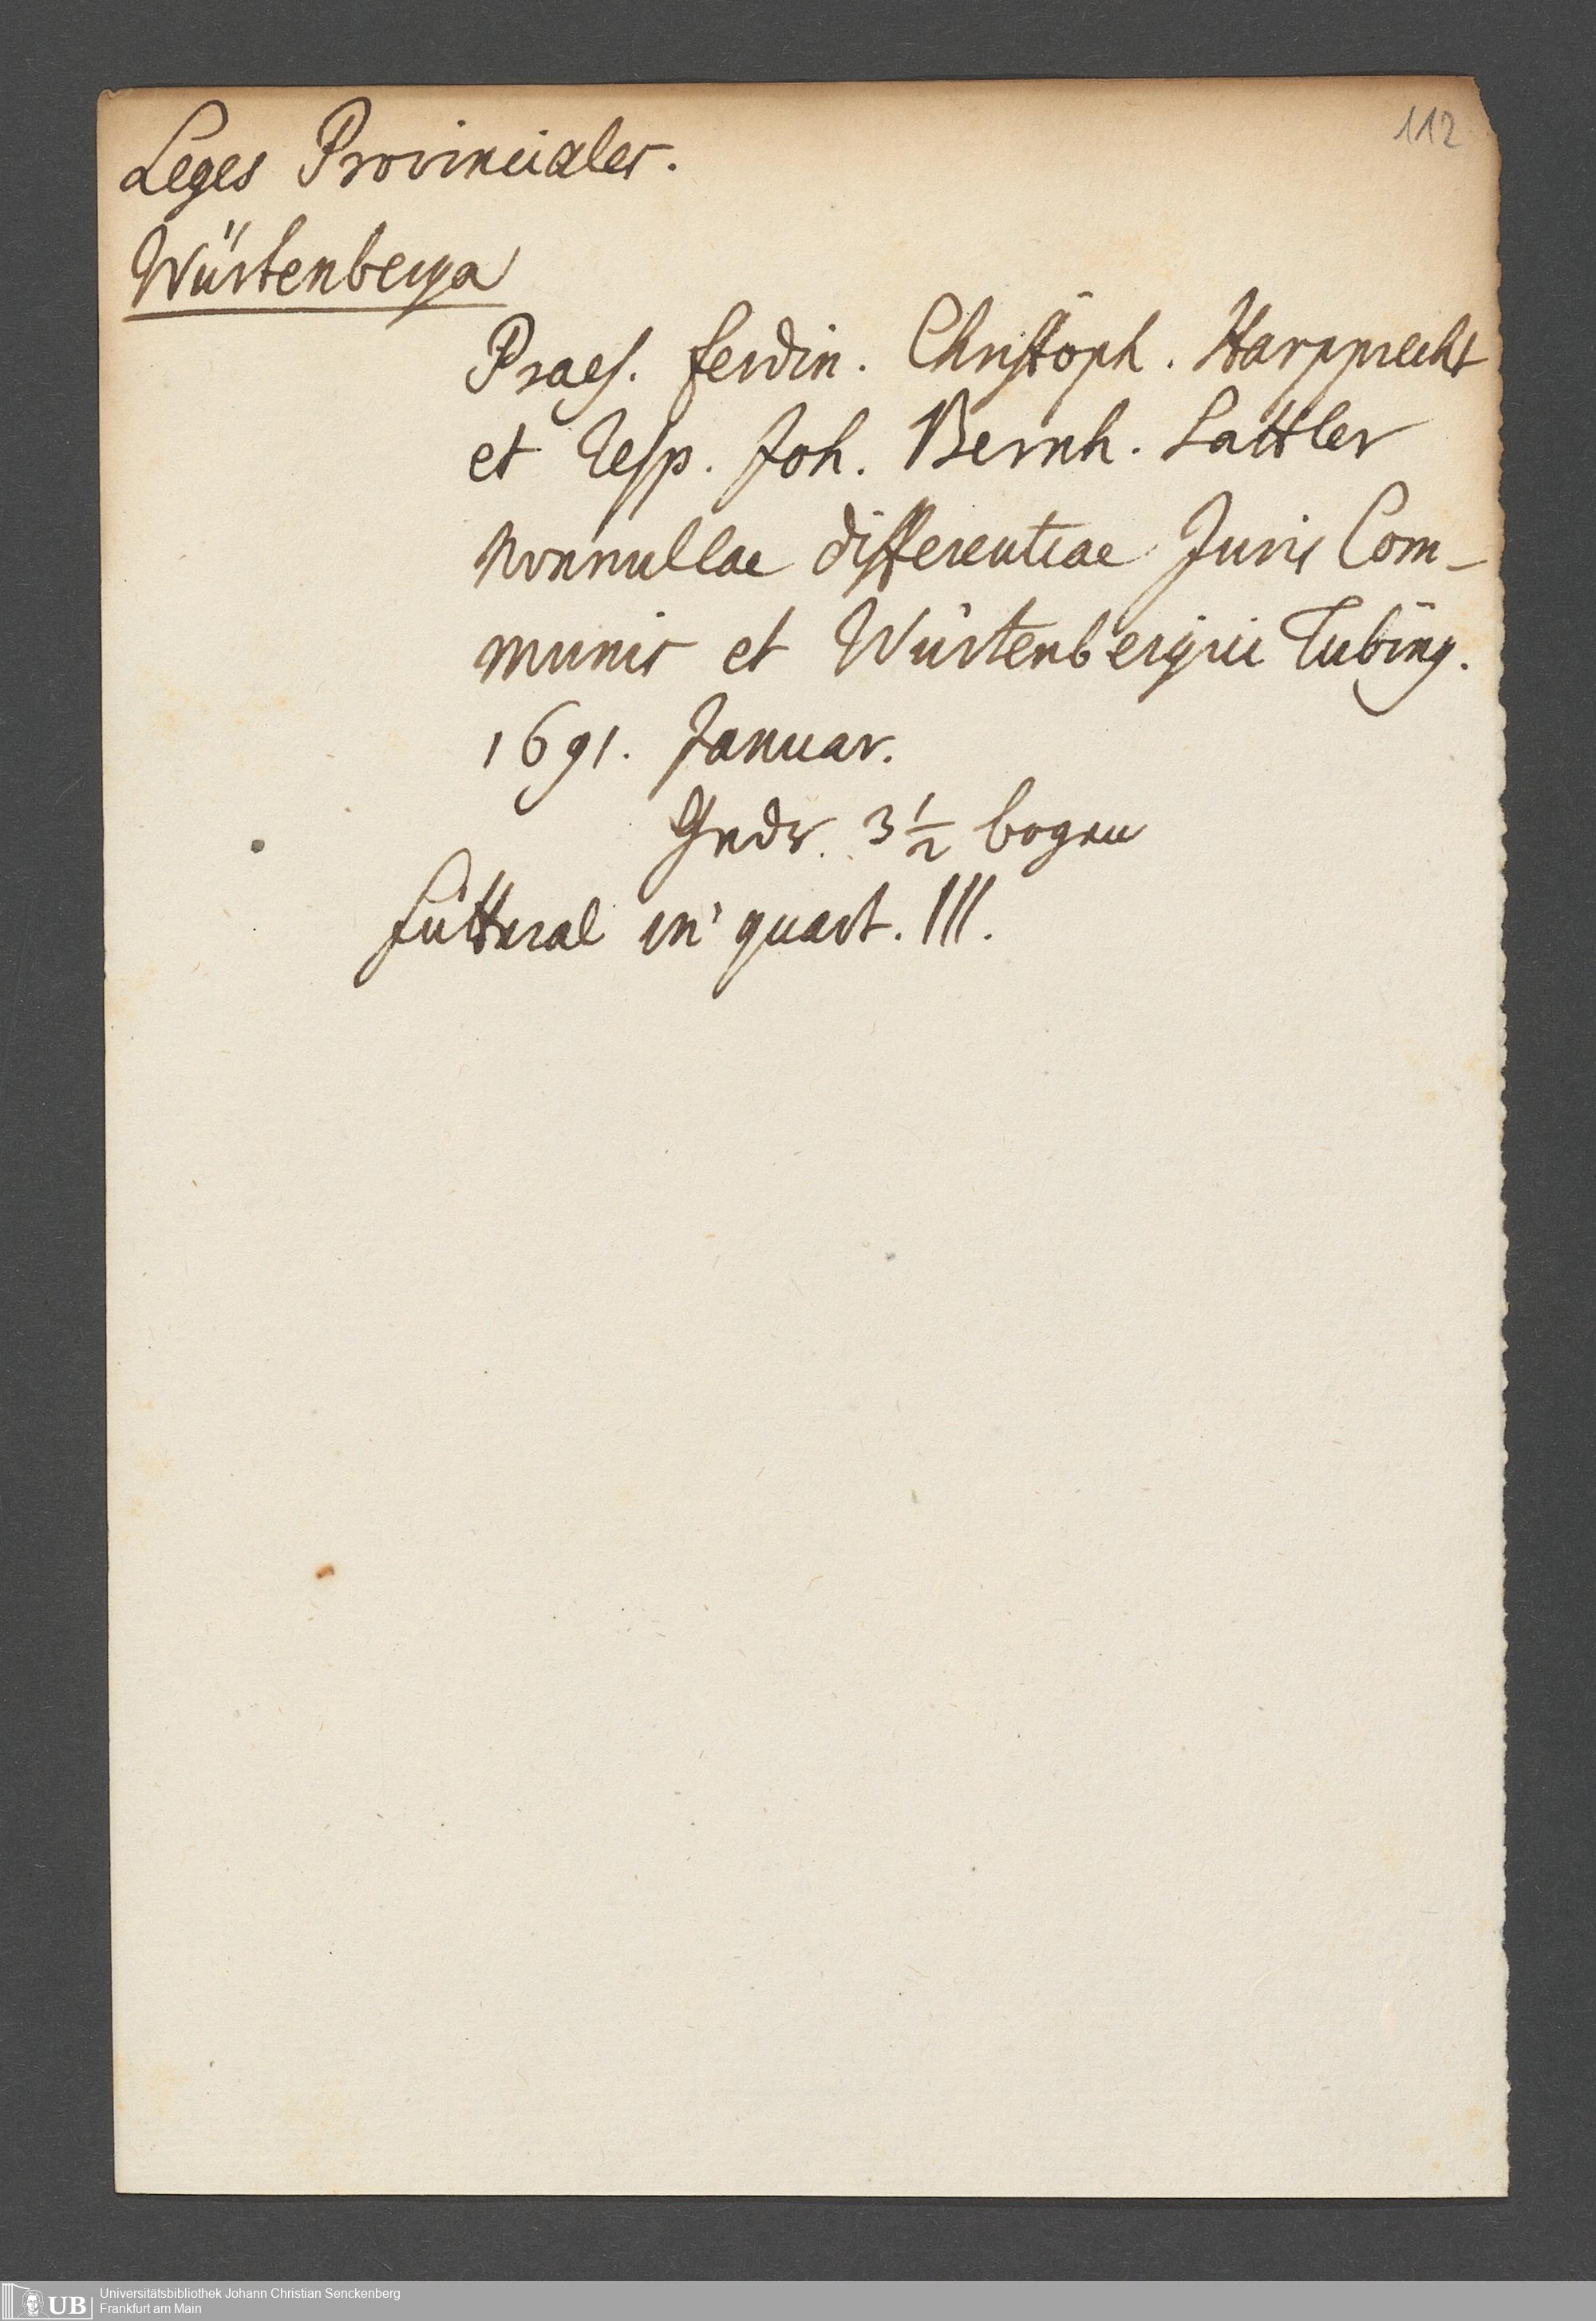 112
Leges Provinciales.
Würtenberga
Praes. Ferdin. Christoph. Harpprecht
et Resp. Joh. Bernh. Sattler
nonnullae differentiae Juris Com-
munis et Würtenbergici Tubing.
1691. Januar.
3 1/2 bogen
Futteral in quart. III.
UB Universitätsbibliothek Johann Christian Senckenberg
Frankfurt am Main